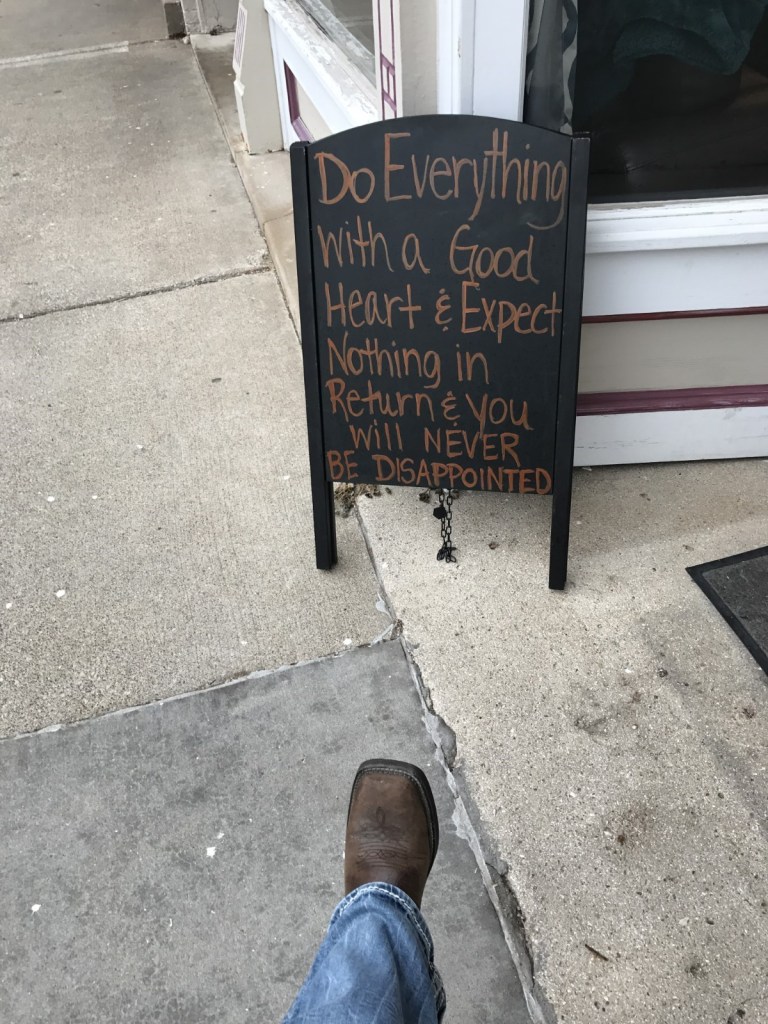 Do Everything
with a Good
Heart & Expect
Nothing in
Return & you
will NEVER
BE DISAPPOINTED